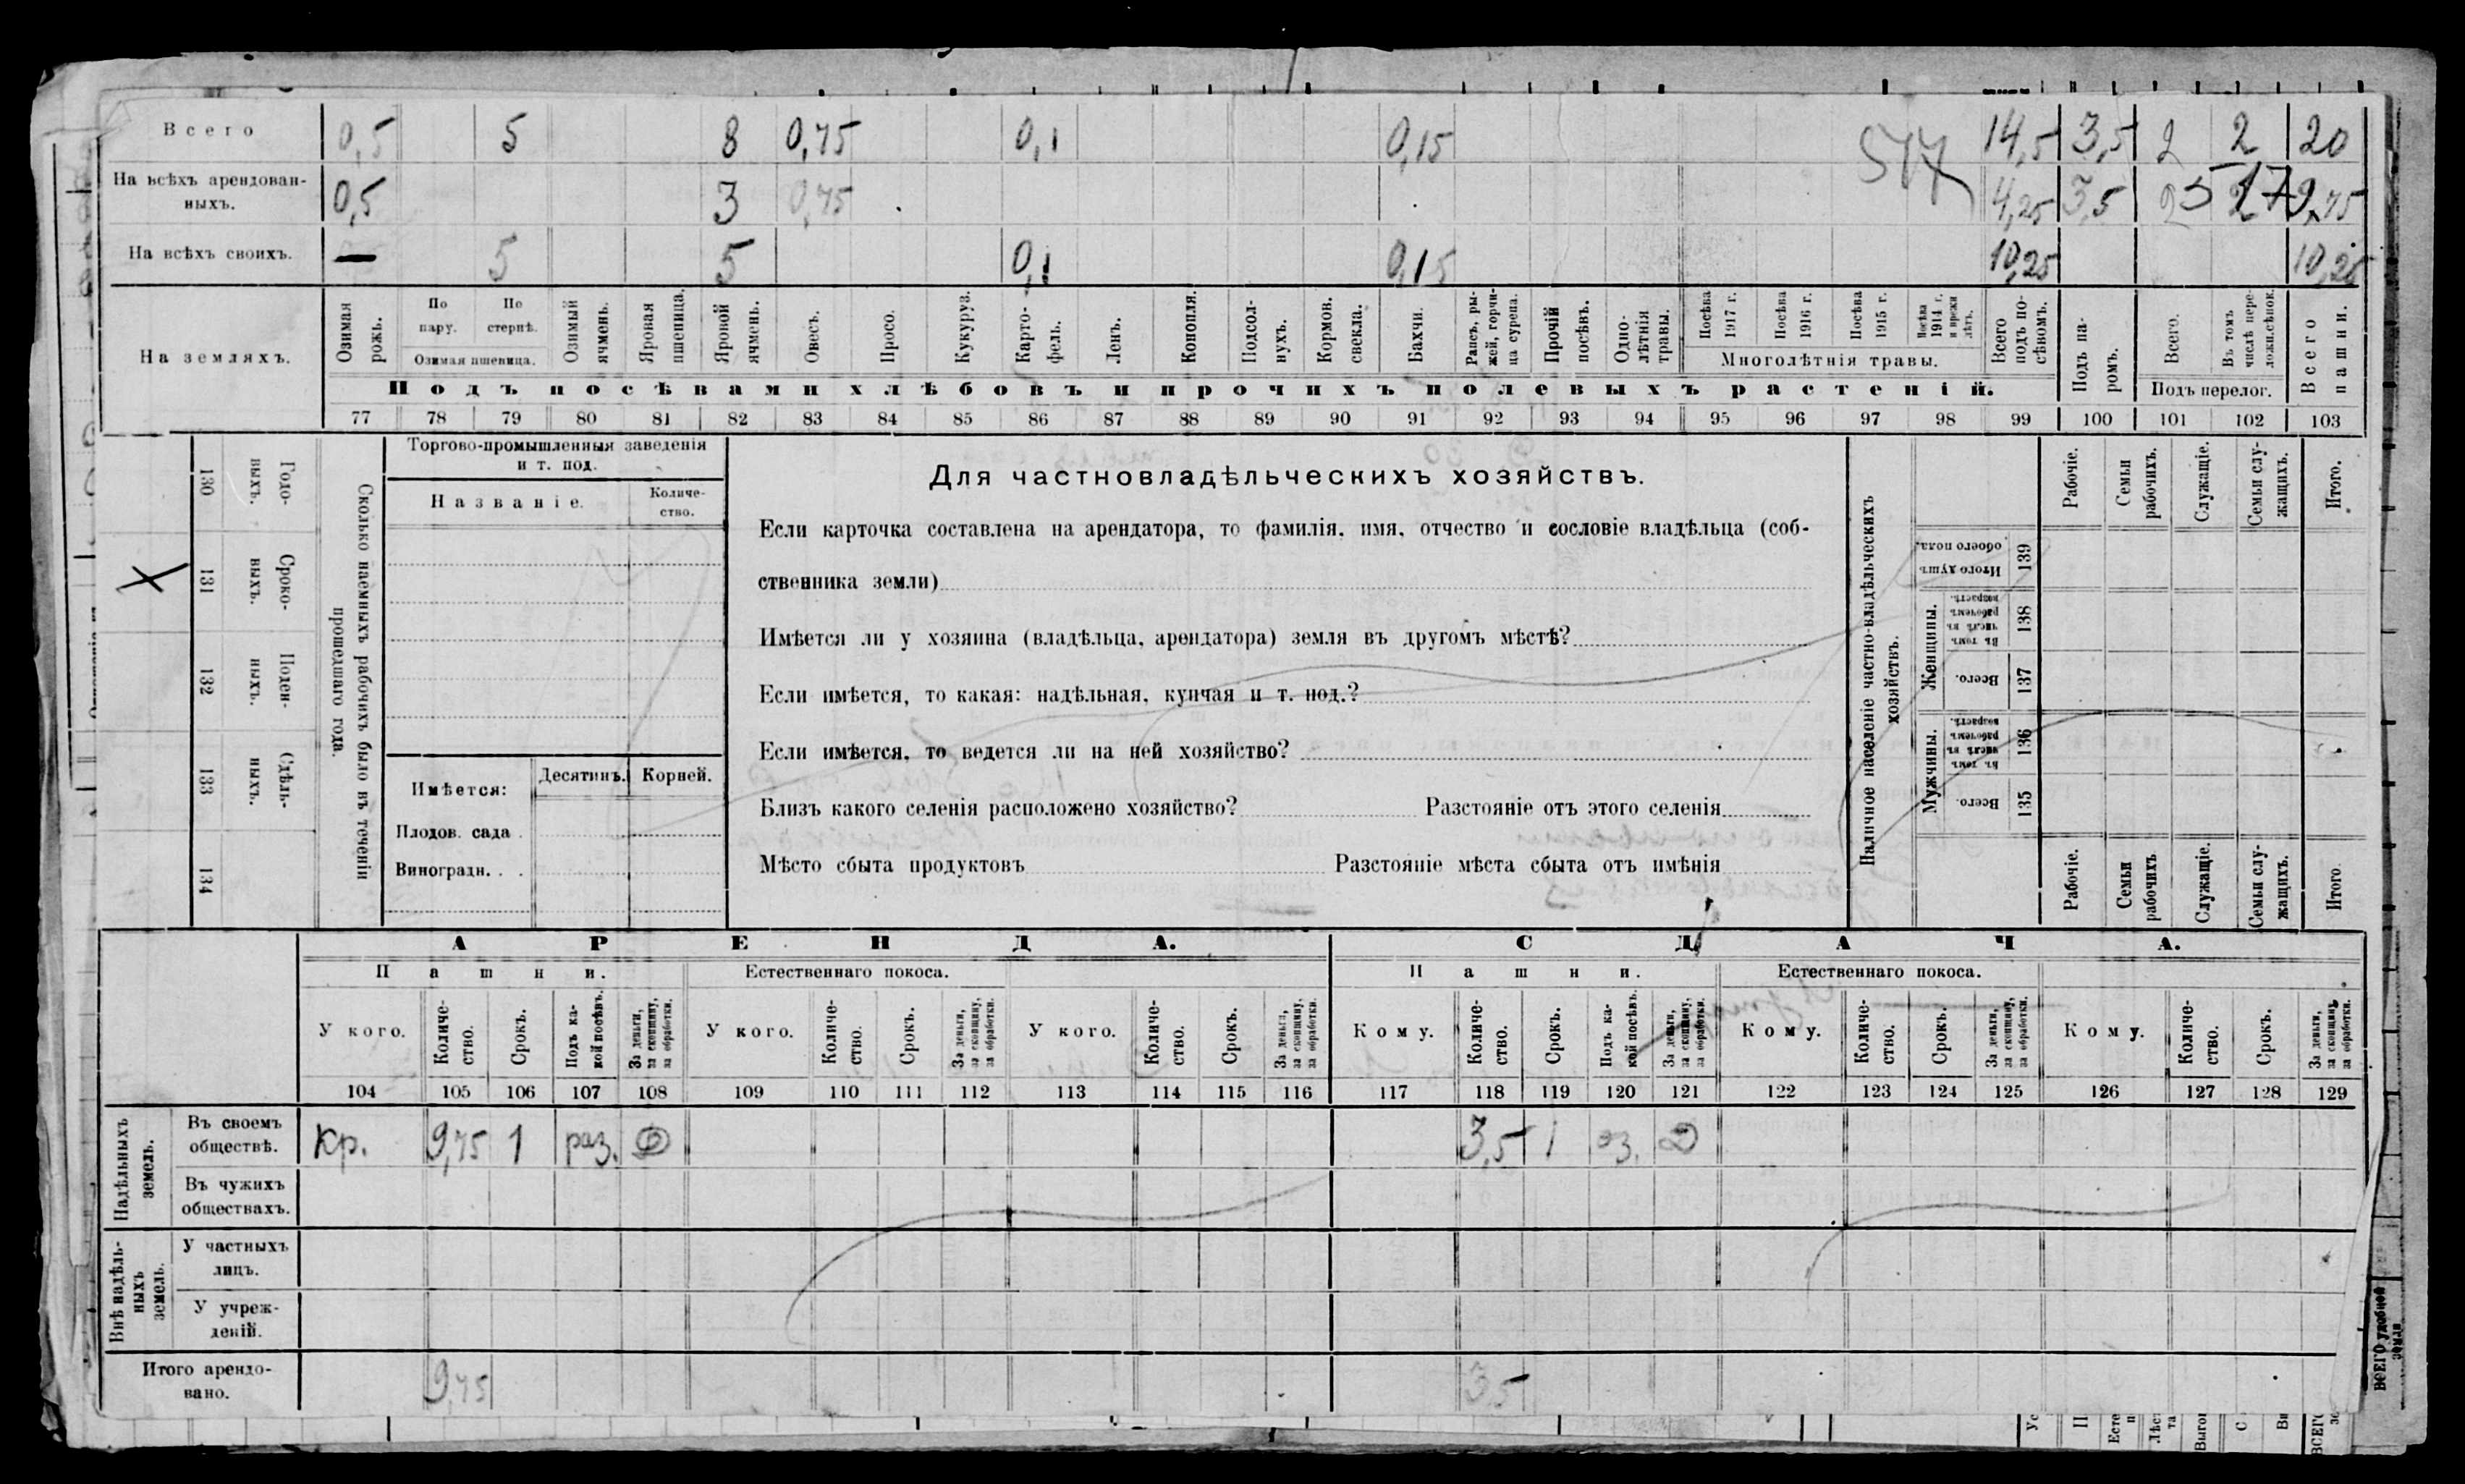 Всего 0,5 5 8 0,75 0,1 0,15 14,5 3,5 2 2 20
517
На всѣхъ арендован-
ныхъ. 0,5 3 0,75 4,25 3,5 2 2 9,75
517
На всѣхъ своихъ. — 5 5 0,1 0,15 10,25 10,25
На земляхъ.
Озимая рожь.
По пару.
По стернѣ.
Озимая пшеница.
Озимый ячмень.
Яровая пшеница.
Яровой ячмень.
Овесъ.
Просо.
Кукуруз.
Карто-
фель.
Ленъ.
Конопля.
Подсол-
нухъ.
Кормов.
свекла.
Бахчи.
Рапсъ, ры-
жей, горчи-
ца сурепа.
Прочій
посѣвъ.
Одно-
лѣтнія
травы.
Посѣва
1917 г.
Посѣва
1916 г.
Посѣва
1915 г.
Посѣва
1914 г.
Многолѣтнія травы.
Всего
подъ по-
сѣвомъ.
Подъ па-
ромъ.
Всего.
Въ томъ
числѣ пере-
Подъ перелог.
Всего
пашни.
Подъ посѣвами хлѣбовъ и прочихъ полевыхъ растеній.
77 78 79 80 81 82 83 84 85 86 87 88 89 90 91 92 93 94 95 96 97 98 99 100 101 102 103
130 131 132 133 134
Годо-
выхъ.
Сроко-
ныхъ.
Поден-
ныхъ.
Сдѣль-
ныхъ.
Сколько наемныхъ рабочихъ было въ теченіи
прошедшаго года.
Торгово-промышленныя заведенія
и т. под.
Названіе.
Количе-
ство.
Имѣется:
Десятинъ.
Корней.
Плодов. сада .
Виноградн. . .
Для частновладѣльческихъ хозяйствъ.
Если карточка составлена на арендатора, то фамилія, имя, отчество и сословіе владѣльца (соб-
ственника земли)
Имѣется ли у хозяина (владѣльца, арендатора) земля въ другомъ мѣстѣ?
Если имѣется, то какая: надѣльная, купчая и т. под.?
Если имѣется, то ведется ли на ней хозяйство?
Близъ какого селенія расположено хозяйство? Разстояніе отъ этого селенія
Мѣсто сбыта продуктовъ Разстояніе мѣста сбыта отъ имѣнія
Наличное населеніе частно-владѣльческихъ
хозяйствъ.
Рабочіе.
Семьи
рабочихъ.
Служащіе.
Семьи слу-
жащихъ.
Итого.
Итого душъ
обоего пола.
139
Женщины.
Въ томъ
числѣ въ
рабочемъ
возрастѣ.
138
Всего.
137
Мужчины.
Въ томъ
числѣ въ
рабочемъ
возрастѣ.
136
Всего.
135
Рабочіе.
Семьи
рабочихъ
Служащіе.
Семьи слу-
жащихъ.
Итого
АРЕНДА. СДАЧА.
Пашни. Естественнаго покоса. Пашни. Естественнаго покоса.
У кого.
Количе-
ство.
Срокъ.
Подъ ка-
кой посѣвъ.
За деньги,
за скопщину,
за обработки.
У кого.
Количе-
ство.
Срокъ.
За деньги,
за скопщину,
за обработки.
У кого.
Количе-
ство.
Срокъ.
За деньги,
за скопщину,
за обработки.
Кому.
Количе-
ство.
Срокъ.
Подъ ка-
кой посѣвъ.
За деньги,
за скопщину,
за обработки.
Кому.
Количе-
ство.
Срокъ.
За деньги,
за скопщину,
за обработки.
Кому.
Количе-
ство.
Срокъ.
За деньги,
за скопщину
за обработки.
104 105 106 107 108 109 110 111 112 113 114 115 116 117 118 119 120 121 122 123 124 125 126 127 128 129
Надѣльныхъ
земель.
Въ своемъ
обществѣ. Кр. 9,75 1 раз. Д 3,5 1 оз. Д
Въ чужихъ
обществахъ.
Внѣ надѣль-
ныхъ
земель.
У частныхъ
лицъ.
У учреж-
деній.
Итого арендо-
вано. 9,75 3,5
ВСЕГО удобной
земли